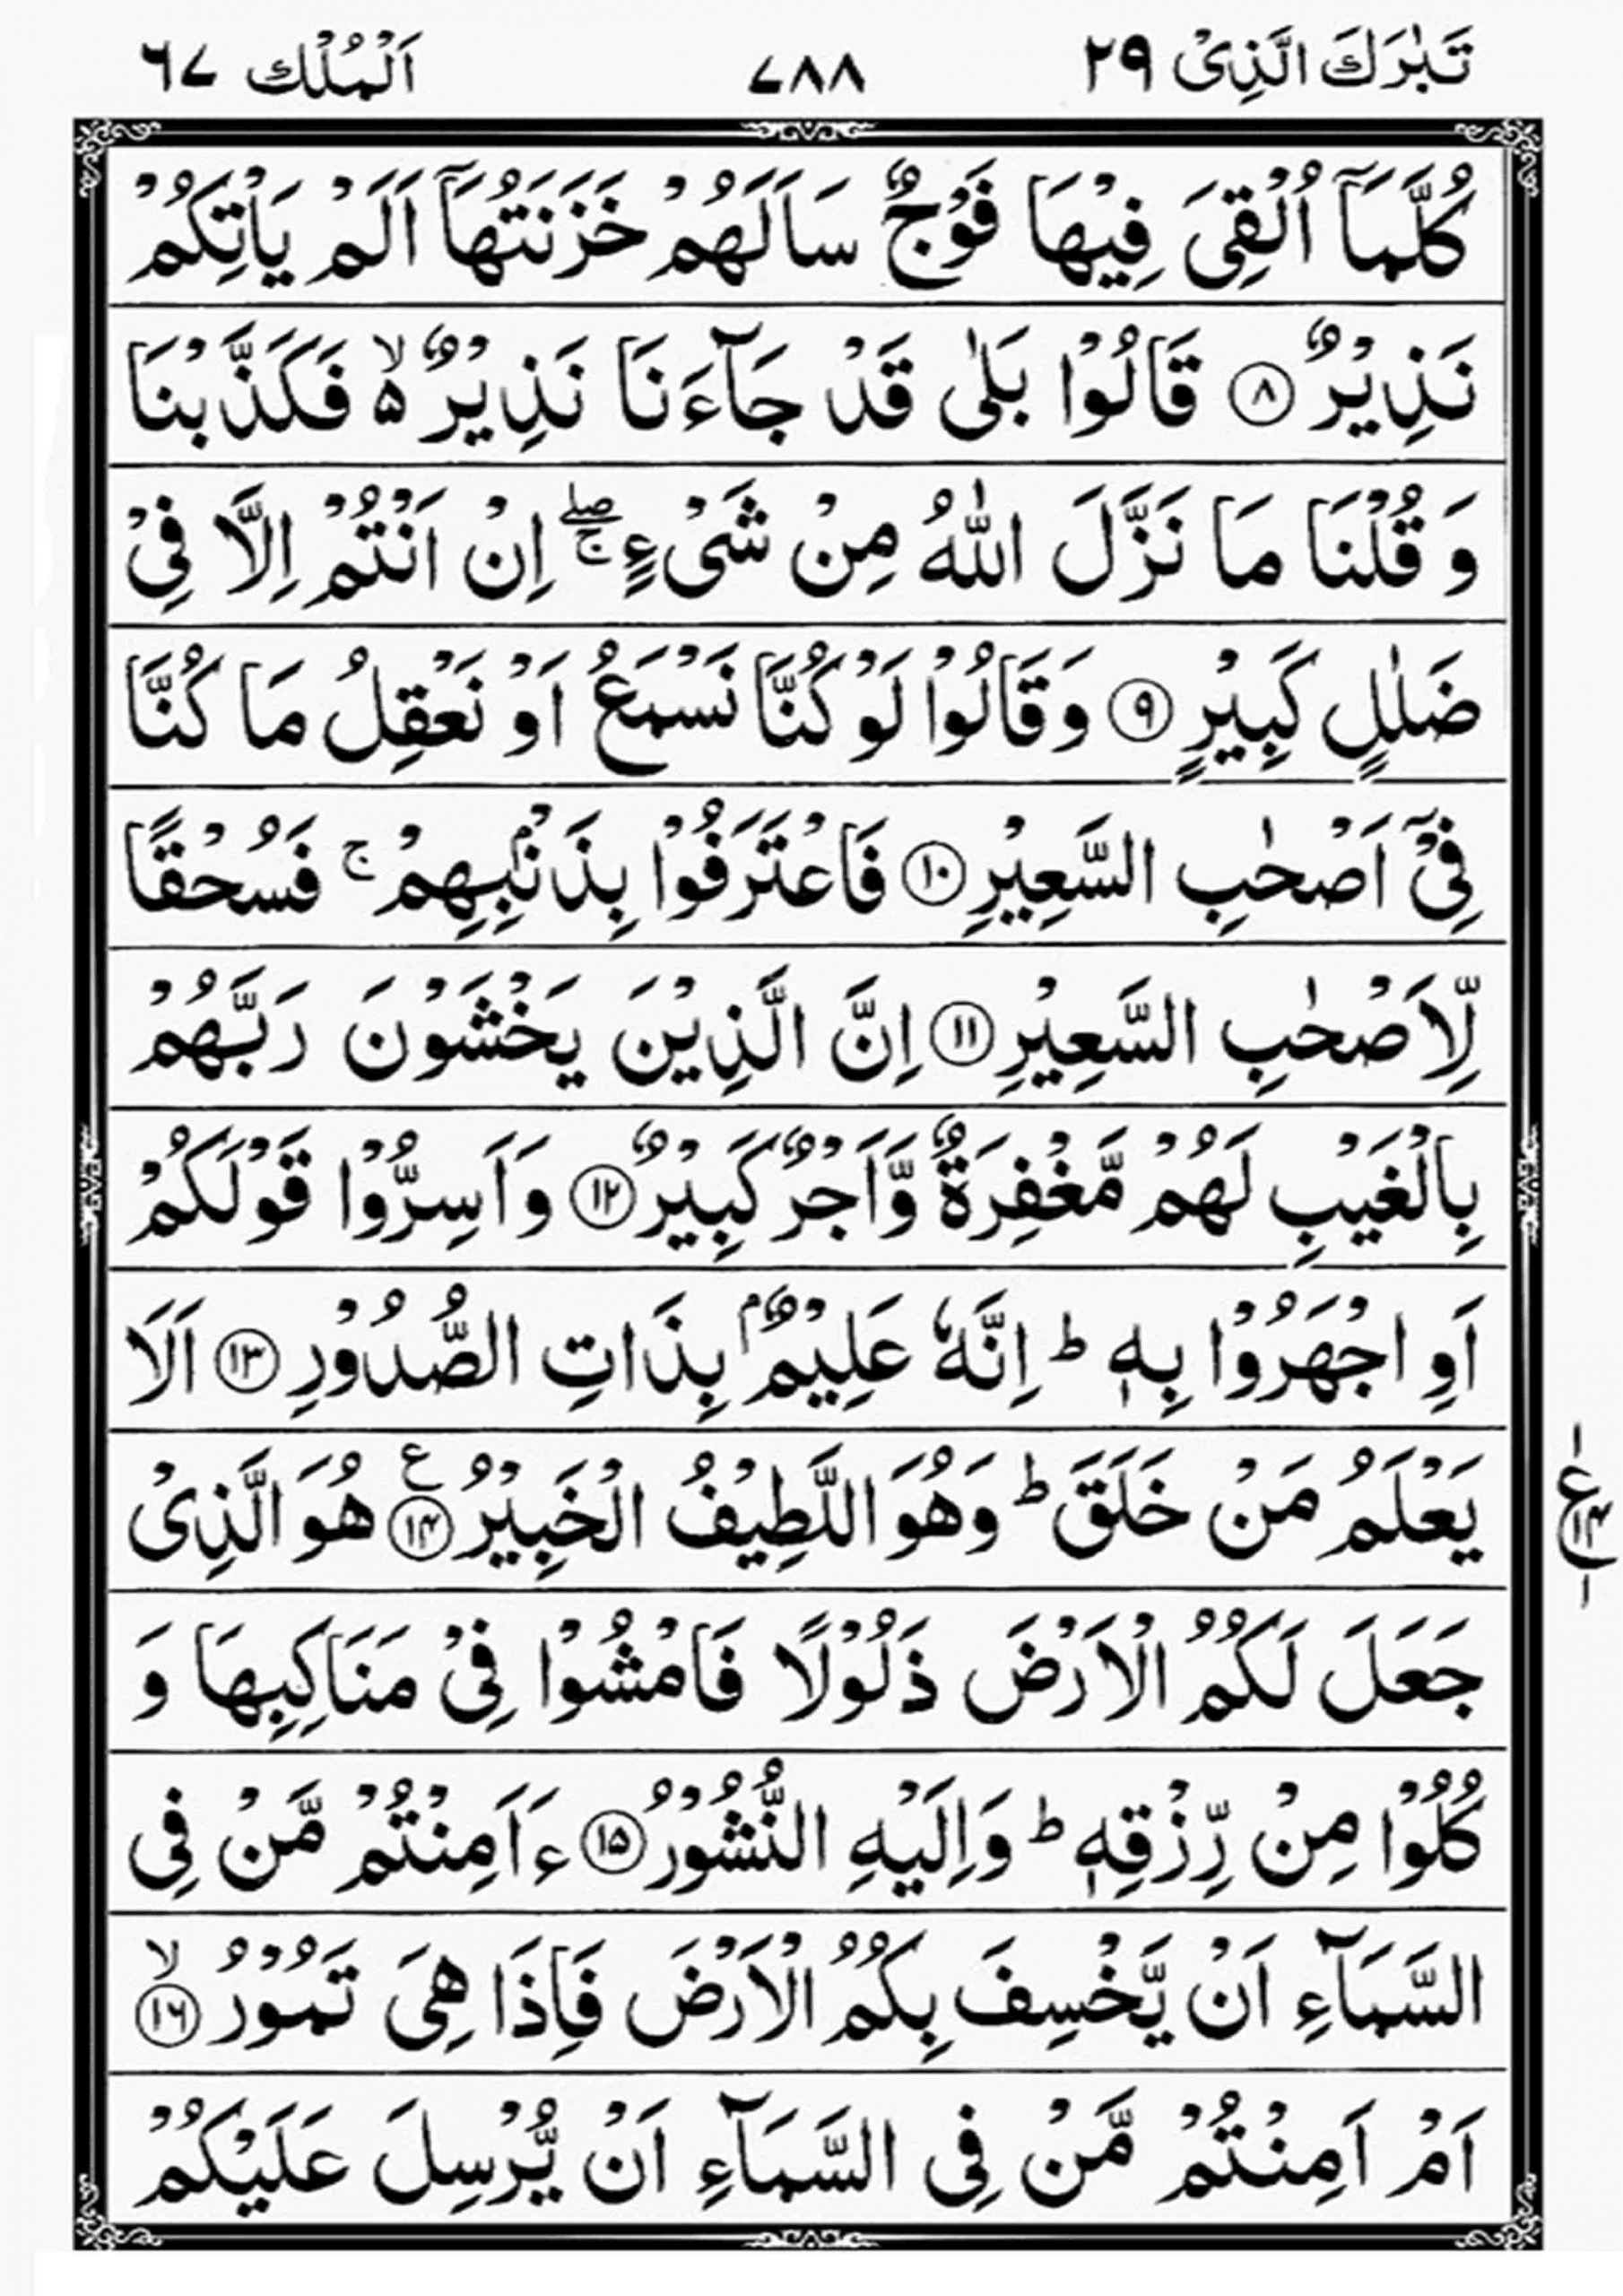 تَبٰرَكَ الَّذِىْ ٢٩ ٧٨٨ اَلْمُلْك ٦٧
كُلَّمَاۤ اُلْقِىَ فِيْهَا فَوْجٌ سَاَلَهُمْ خَزَنَتُهَاۤ اَلَمْ يَاْتِكُمْ
نَذِيْرٌ ﴿٨﴾ قَالُوْا بَلٰى قَدْ جَآءَنَا نَذِيْرٌ ۙ۵ فَكَذَّبْنَا
وَ قُلْنَا مَا نَزَّلَ اللّٰهُ مِنْ شَىْءٍ ۖۚ اِنْ اَنْتُمْ اِلَّا فِىْ
ضَلٰلٍ كَبِيْرٍ ﴿٩﴾ وَقَالُوْا لَوْ كُنَّا نَسْمَعُ اَوْ نَعْقِلُ مَا كُنَّا
فِىْۤ اَصْحٰبِ السَّعِيْرِ ﴿١٠﴾ فَاعْتَرَفُوْا بِذَنْۢبِهِمْ ۚ فَسُحْقًا
لِّاَصْحٰبِ السَّعِيْرِ ﴿١١﴾ اِنَّ الَّذِيْنَ يَخْشَوْنَ رَبَّهُمْ
بِالْغَيْبِ لَهُمْ مَّغْفِرَةٌ وَّاَجْرٌ كَبِيْرٌ ﴿١٢﴾ وَاَسِرُّوْا قَوْلَكُمْ
اَوِ اجْهَرُوْا بِهٖ ؕ اِنَّهٗ عَلِيْمٌۢ بِذَاتِ الصُّدُوْرِ ﴿١٣﴾ اَلَا
يَعْلَمُ مَنْ خَلَقَ ؕ وَهُوَ اللَّطِيْفُ الْخَبِيْرُ ﴿١٤﴾ ع هُوَ الَّذِىْ
جَعَلَ لَكُمُ الْاَرْضَ ذَلُوْلًا فَامْشُوْا فِىْ مَنَاكِبِهَا وَ
كُلُوْا مِنْ رِّزْقِهٖ ؕ وَاِلَيْهِ النُّشُوْرُ ﴿١٥﴾ ءَاَمِنْتُمْ مَّنْ فِى
السَّمَآءِ اَنْ يَّخْسِفَ بِكُمُ الْاَرْضَ فَاِذَا هِىَ تَمُوْرُ ۙ﴿١٦﴾
اَمْ اَمِنْتُمْ مَّنْ فِى السَّمَآءِ اَنْ يُّرْسِلَ عَلَيْكُمْ